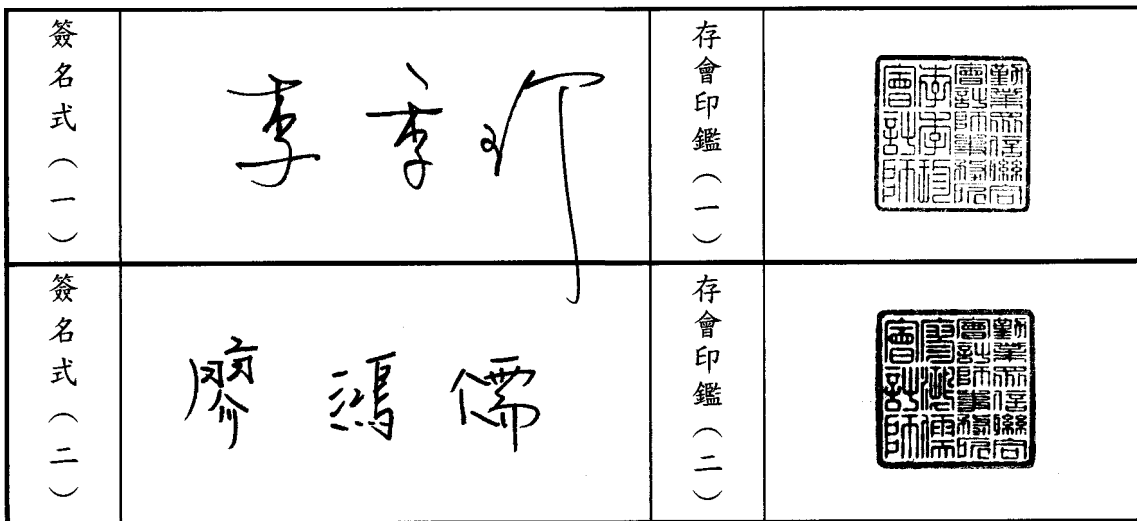 簽名式(一)
李季珍
存會印鑑(一)
勤業眾信聯合
會計師事務所
李季珍
會計師
簽名式(二)
廖鴻儒
存會印鑑(二)
勤業眾信聯合
會計師事務所
廖鴻儒
會計師